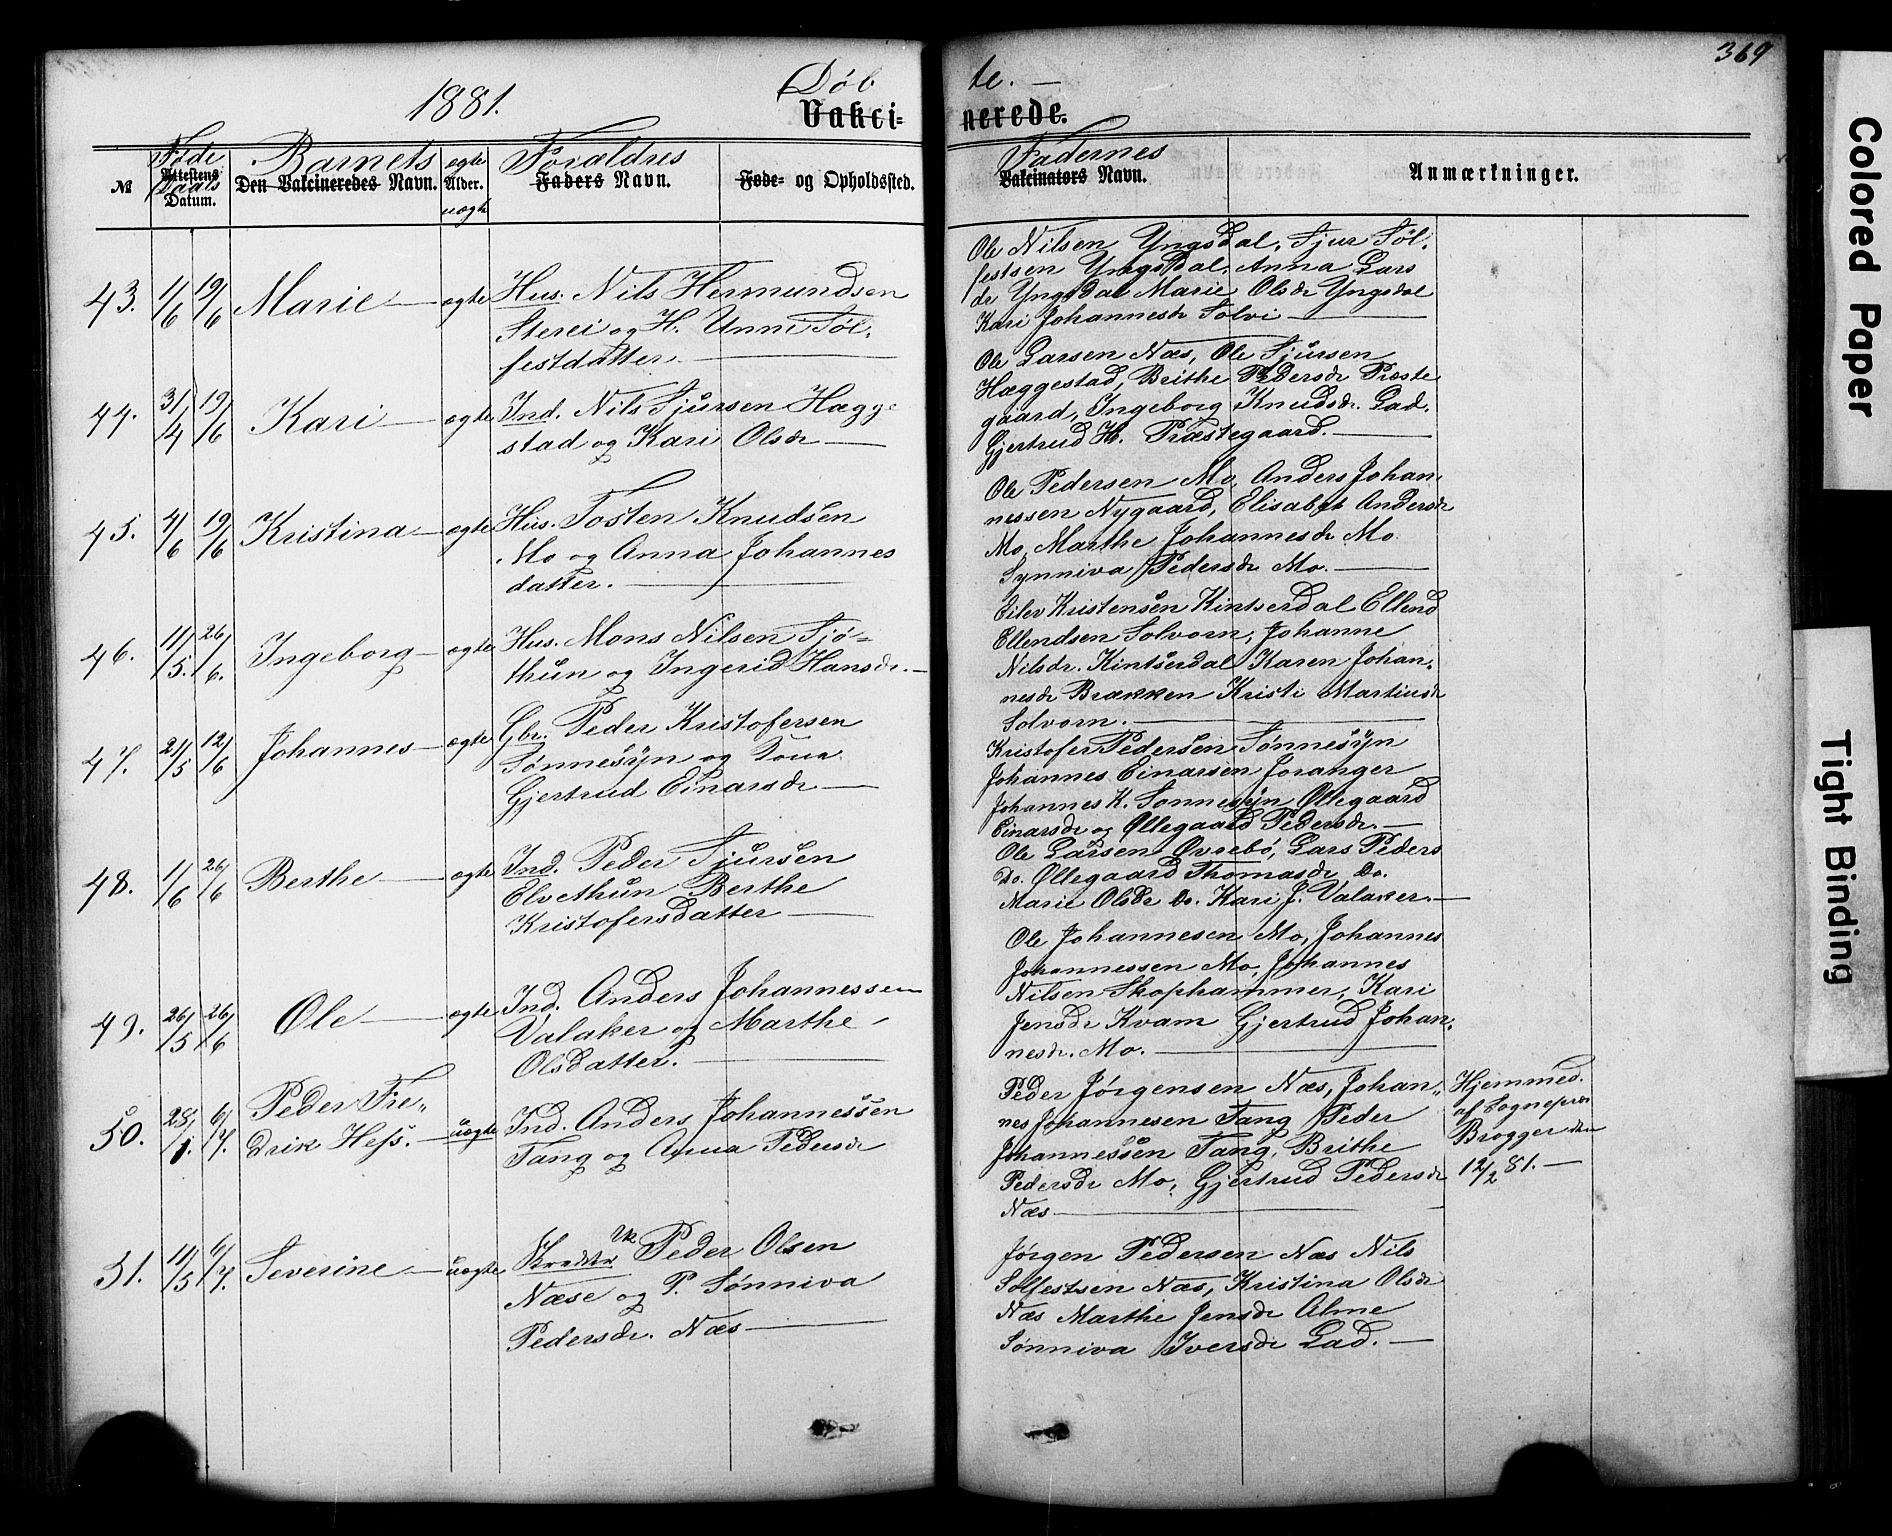 369
1881.
Døb
te. —
Vakci-
nerede.
№
Føde
Attestens
Daabs
Datum.
Barnets
Den Vakcineredes Navn.
ægte
Alder.
uægte
Forældres
Faders Navn.
Føde- og Opholdssted.
Fadernes
Vakcinators Navn.
Anmærkninger.
43. 1/6 19/6 Marie — ægte Hus. Nils Hermundsen
og H. Unni Søl-
festdatter. —
Ole Nilsen Yngsdal, Sjur Søl-
festsen Yngsdal, Anna Lars
dr Yngsdal Marie Olsdr Yngsdal
Kari Johannesdr Solvi —
44. 31/4 19/6 Kari — ægte Ind. Nils Sjursen Hægge-
stad og Kari Olsdr —
Ole Larsen Næs, Ole Sjursen
Hæggestad, Brithe Pedersdr Præste
gaard, Ingeborg Knudsdr. Lad.
Gjertrud H. Præstegaard. —
45. 4/6 19/6 Kristina — ægte Hus. Tosten Knudsen
Mo og Anna Johannes
datter. —
Ole Pedersen Mo, Anders Johan-
nessen Nygaard, Elisabet Andersdr
Mo, Marthe Johannesdr Mo
Synniva Pedersdr Mo. —
46. 11/5. 26/6. Ingeborg — ægte Hus. Mons Nilsen Sjø-
thun og Ingerid Hansdr. —
Eilev Kristensen Kinserdal Ellend
Ellendsen Solvorn, Johanne
Nilsdr. Kintserdal Karen Johan-
nesdr Brækken Kristi Martinsdr
Solvorn. —
47. 21/5 12/6 Johannes — ægte Gbr. Peder Kristofersen
Sønnesyn og Kona
Gjertrud Einarsdr —
Kristofer Pedersen Sønnesyn
Johannes Einarsen Joranger
Johannes K. Sønnesyn Øllegaard
Einarsdr og Øllegaard Pedersdr. —
48. 1/6 26/6 Berthe — ægte Ind. Peder Sjursen
Elvethun Berthe
Kristofersdatter —
Ole Larsen Øvrebø, Lars Peders
Do. Øllegaard Thomasdr Do.
Marie Olsdr Do. Kari J. Valaker. —
49. 26/5 26/6 Ole — ægte Ind. Anders Johannessen
Valaker og Marthe
Olsdatter. —
Ole Johannesen Mo, Johannes
Johannessen Mo, Johannes
Nilsen Skophammer, Kari
Jensdr Kvam Gjertrud Johan-
nesdr. Mo. —
50. 28/1. 6/7. Peder Fre-
drik Hess. — uægte Ind. Anders Johannessen
Tang og Anna Pedersdr
Peder Jørgensen Næs, Johan-
nes Johannesen Tang Peder
Johannessen Tang, Brithe
Pedersdr Mo, Gjertrud Pedersdr
Næs —
Hjemmed.
af Sognepræ
Brøgger den
12/2 81. —
51. 11/5 6/7. Severine — uægte Uk Peder Olsen
Næse og P. Sønniva
Pedersdr. Næs —
Jørgen Pedersen Næs Nils
Solfestsen Næs, Kristina Olsdr
Næs Marthe Jensdr Alme
Sønniva Iversdr Lad. —
Colored Paper
Tight Binding